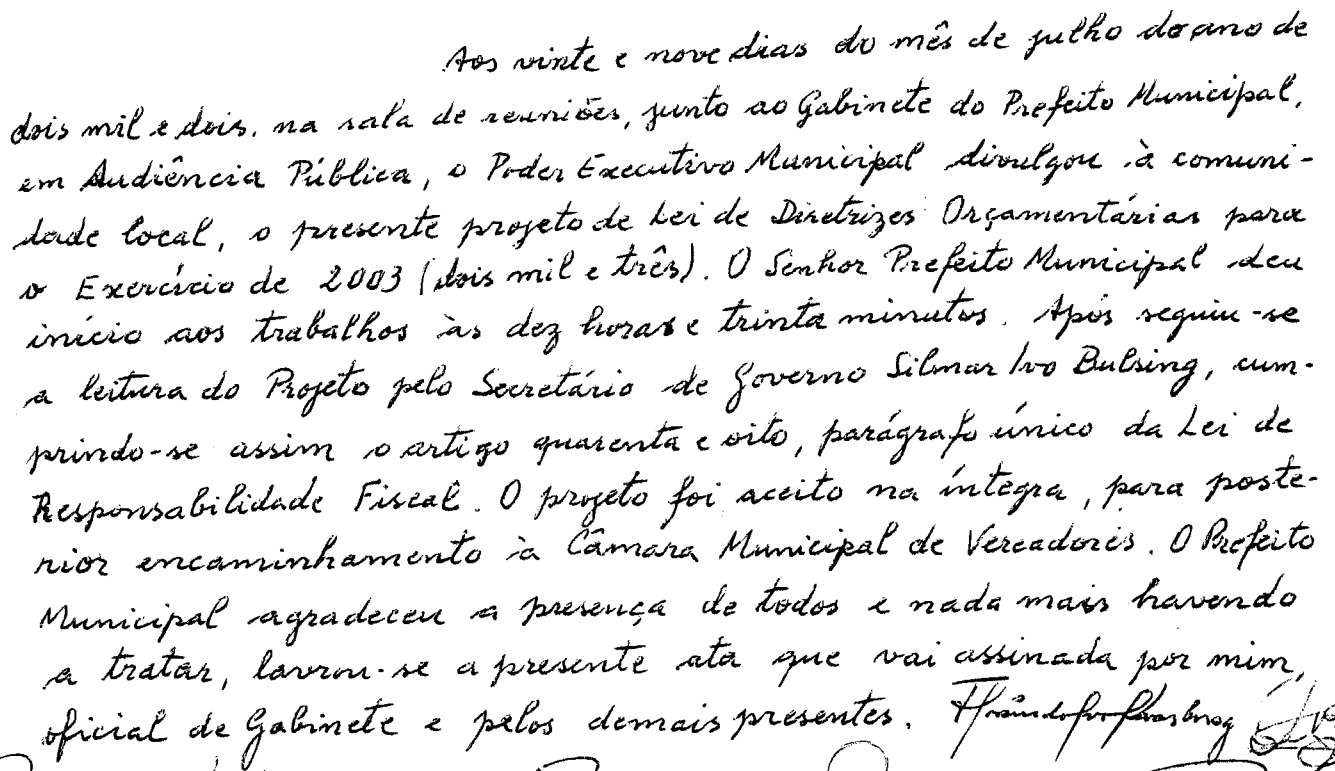 Aos vinte e nove dias do mês de julho do ano de
dois mil e dois, na sala de reuniões, junto ao Gabinete do Prefeito Municipal,
em Audiência Pública, o Poder Executivo Municipal divulgou à comuni-
dade local, o presente projeto de Lei de Diretrizes Orçamentárias para
o Exercício de 2003 (dois mil e três). O Senhor Prefeito Municipal deu
início aos trabalhos às dez horas e trinta minutos. Após seguiu-se
a leitura do Projeto pelo Secretário de Governo Silmar Ivo Bulsing, cum-
prindo-se assim o artigo quarenta e oito, parágrafo único da Lei de
Responsabilidade Fiscal. O projeto foi aceito na íntegra, para poste-
rior encaminhamento à Câmara Municipal de Vereadores. O Prefeito
Municipal agradeceu a presença de todos e nada mais havendo
a tratar, lavrou-se a presente ata que vai assinada por mim,
oficial de Gabinete e pelos demais presentes.